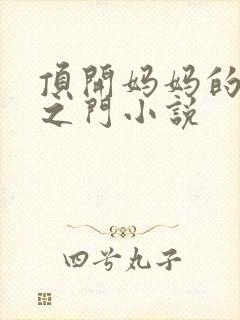 頂開妈妈的
之門小説
四兮丸子